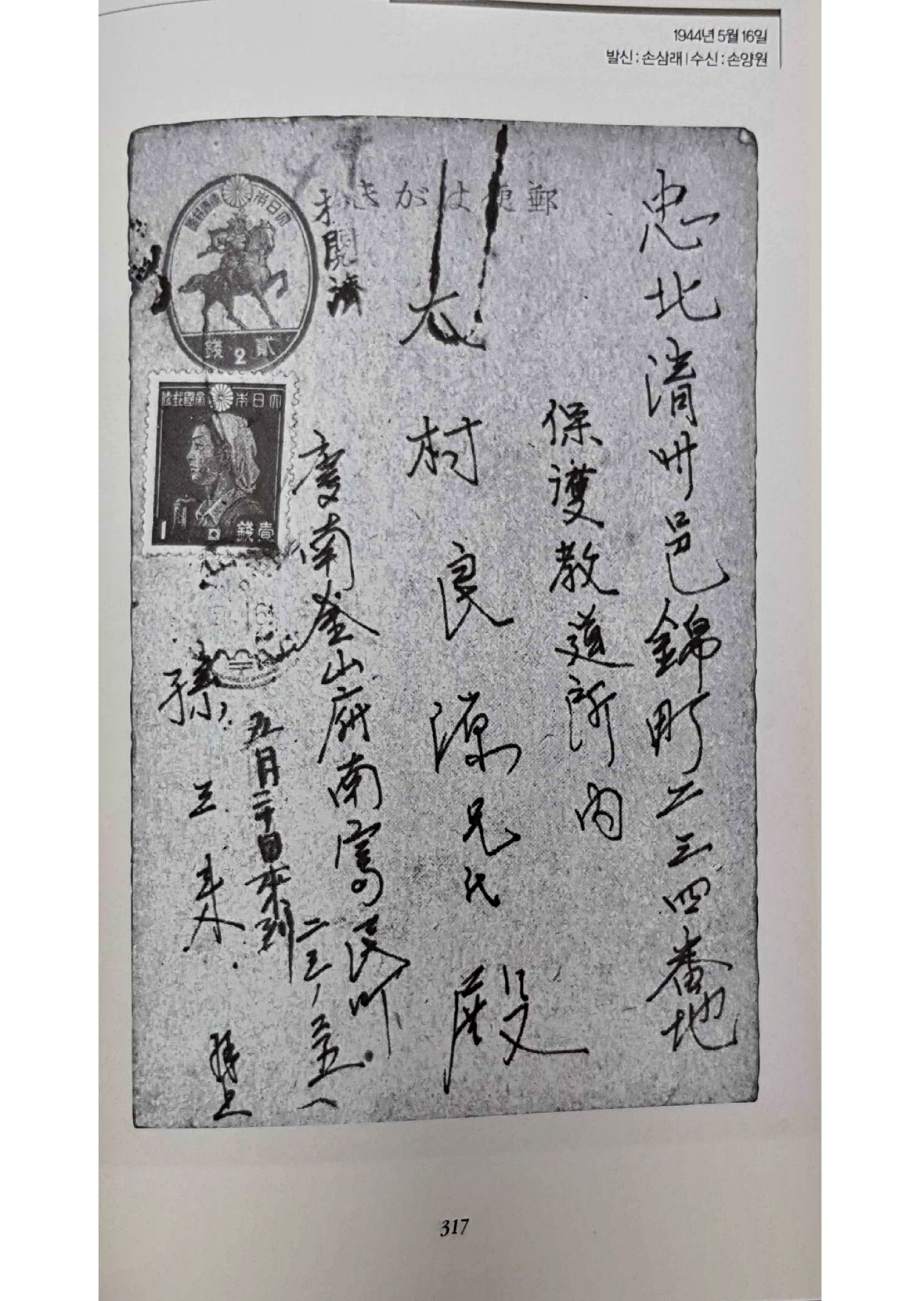 1944년 5월 16일
발신 : 손삼래 | 수신 : 손양원
郵便はがき
忠北清州邑錦町二三四番地
保護教導所内
大村良源兄氏 殿
慶南釜山府南富民町
二三ノ五
五月二十日來到
孫三来 拜上
閱濟
大日本帝國郵便
貳錢
2
大日本帝國郵便
壹錢
1
317